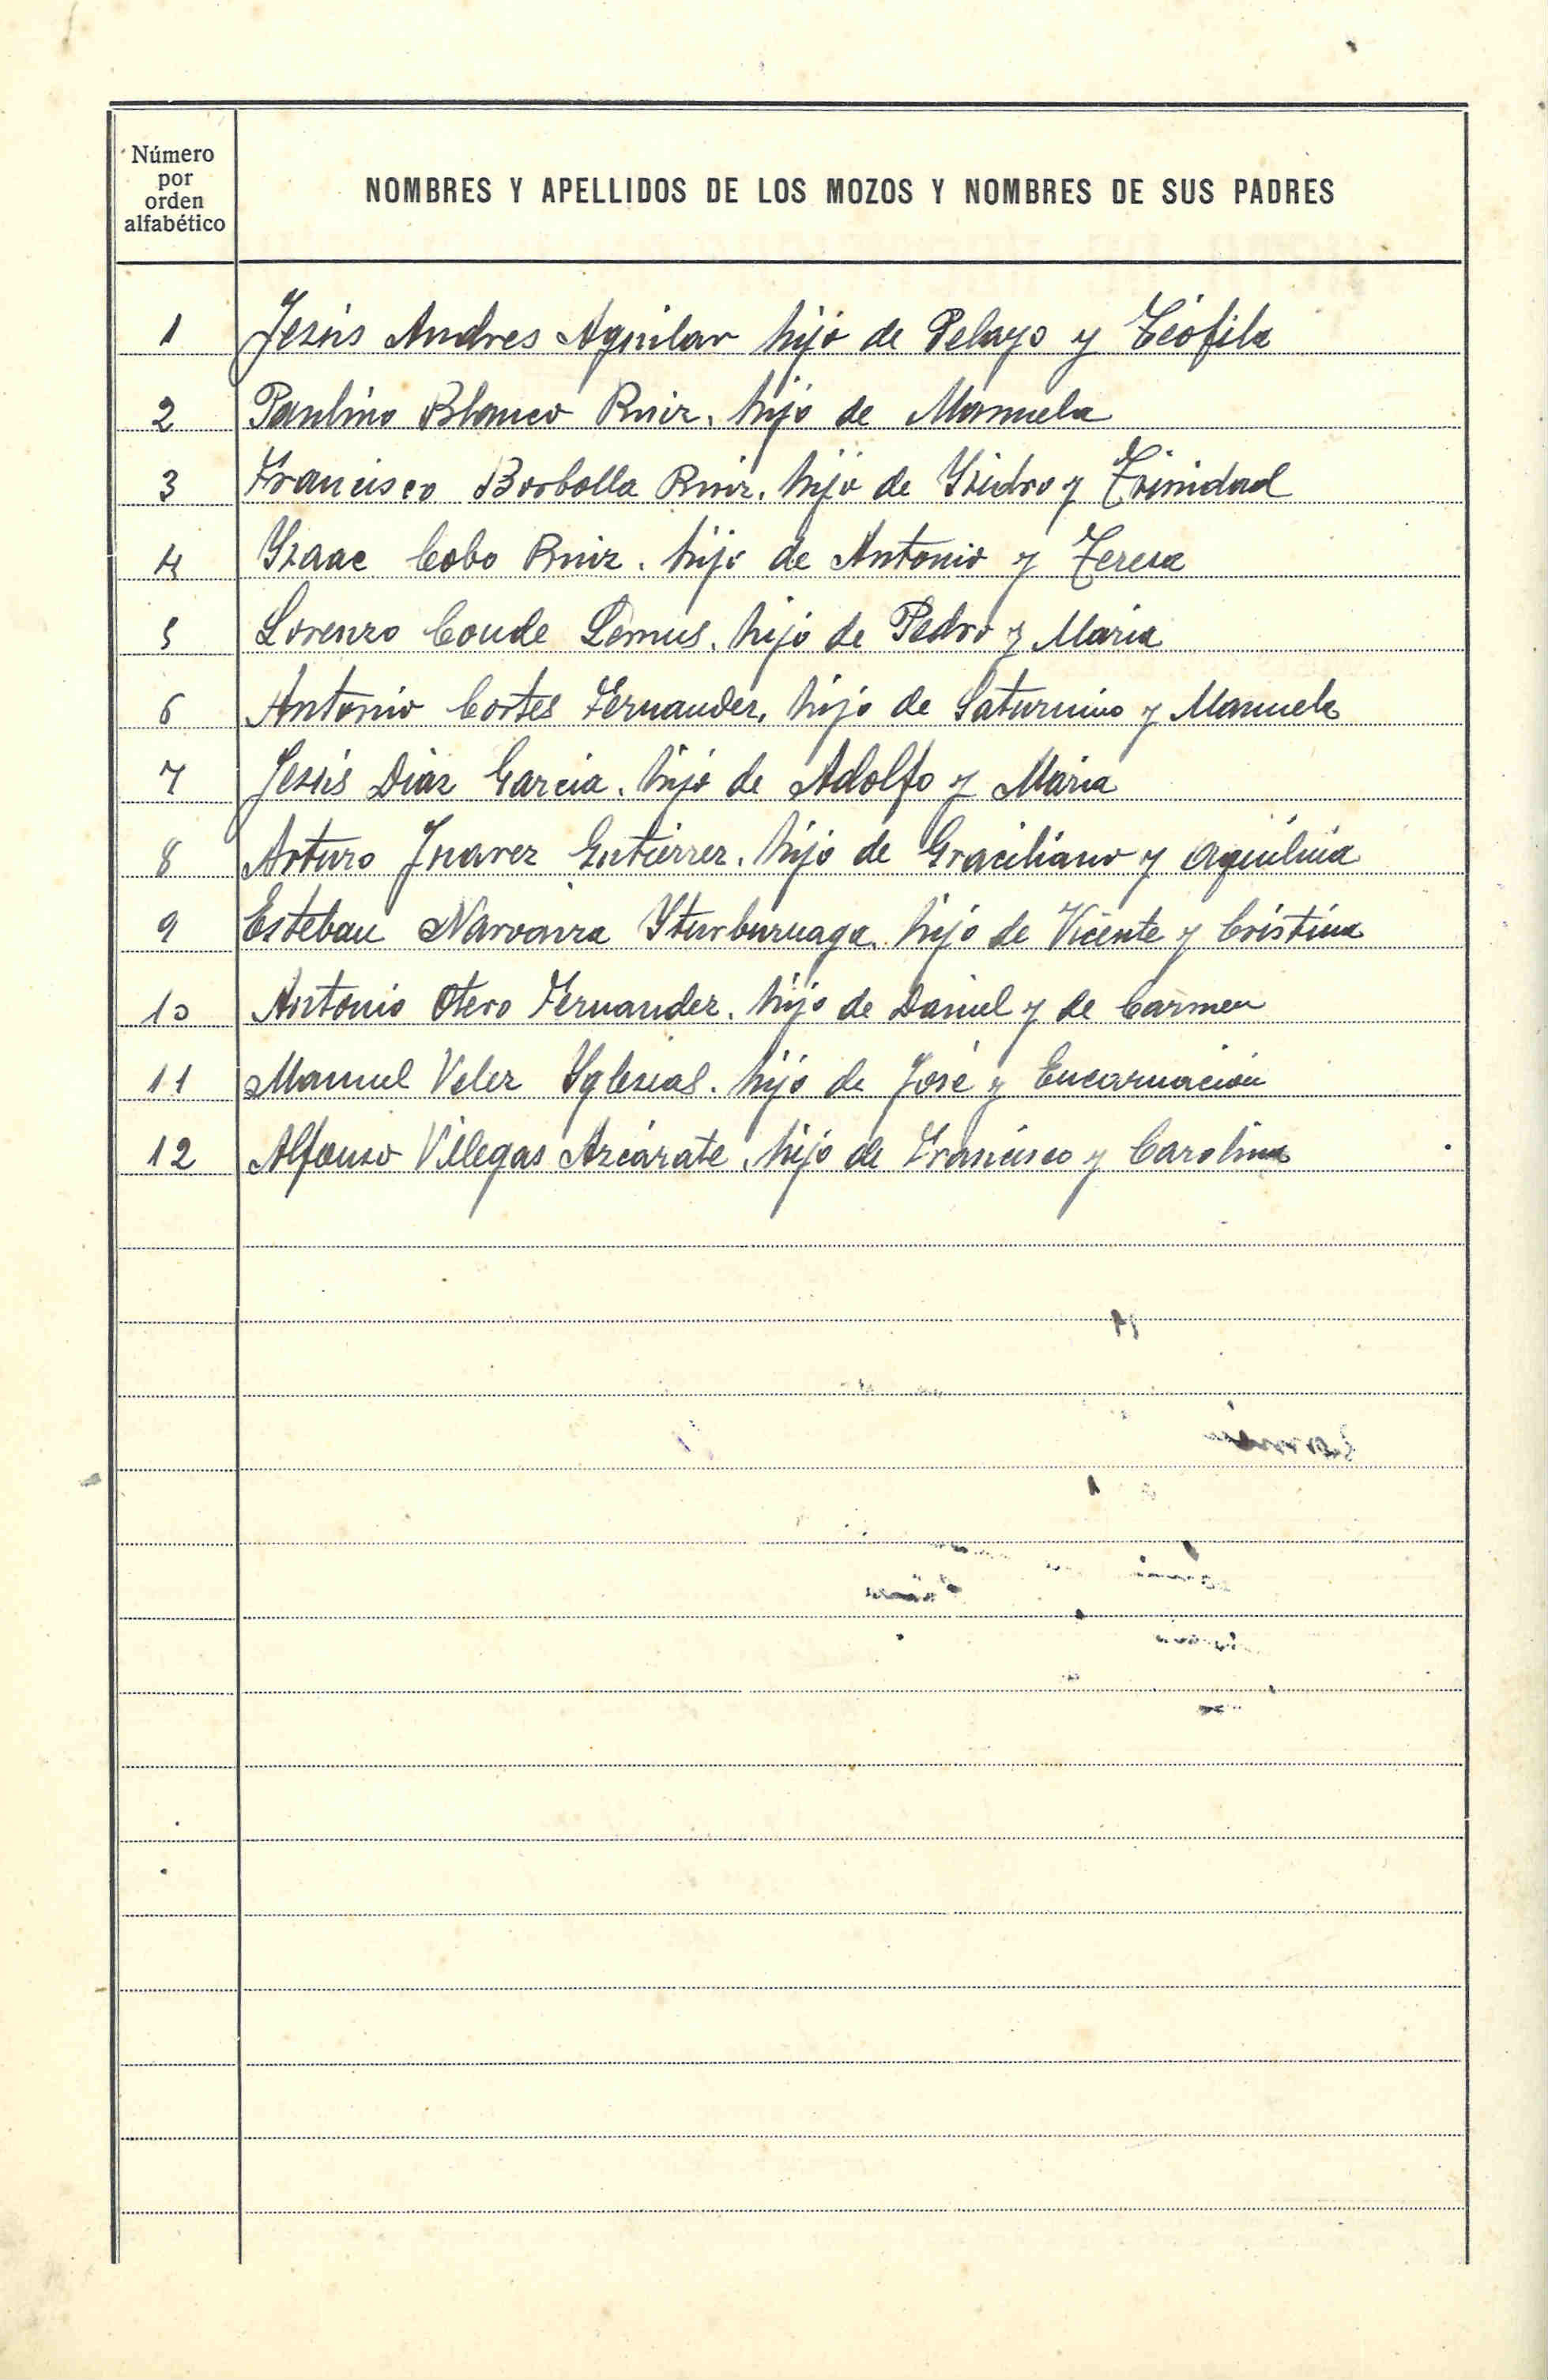 Número
por
orden
alfabético
NOMBRES Y APELLIDOS DE LOS MOZOS Y NOMBRES DE SUS PADRES
1 Jesús Andres Aguilar hijo de Pelayo y Teófila
2 Paulino Blanco Ruiz. hijo de Manuela
3 Francisco Borbolla Ruiz. hijo de Ysidro y Trinidad
4 Ysaac Cobo Ruiz. hijo de Antonio y Teresa
5 Lorenzo Conde Lemus. hijo de Pedro y María
6 Antonio Cortes Fernandez. hijo de Saturnino y Manuela
7 Jesús Diaz Garcia. hijo de Adolfo y Maria
8 Arturo Juarez Gutierrez. hijo de Graciliano y Aquilina
9 Esteban Narvaiza Yturburuaga. hijo de Vicente y Cristina
10 Antonio Otero Fernandez. hijo de Daniel y de Carmen
11 Manuel Velez Yglesias. hijo de José y Encarnación
12 Alfonso Villegas Azcárate. hijo de Francisco y Carolina